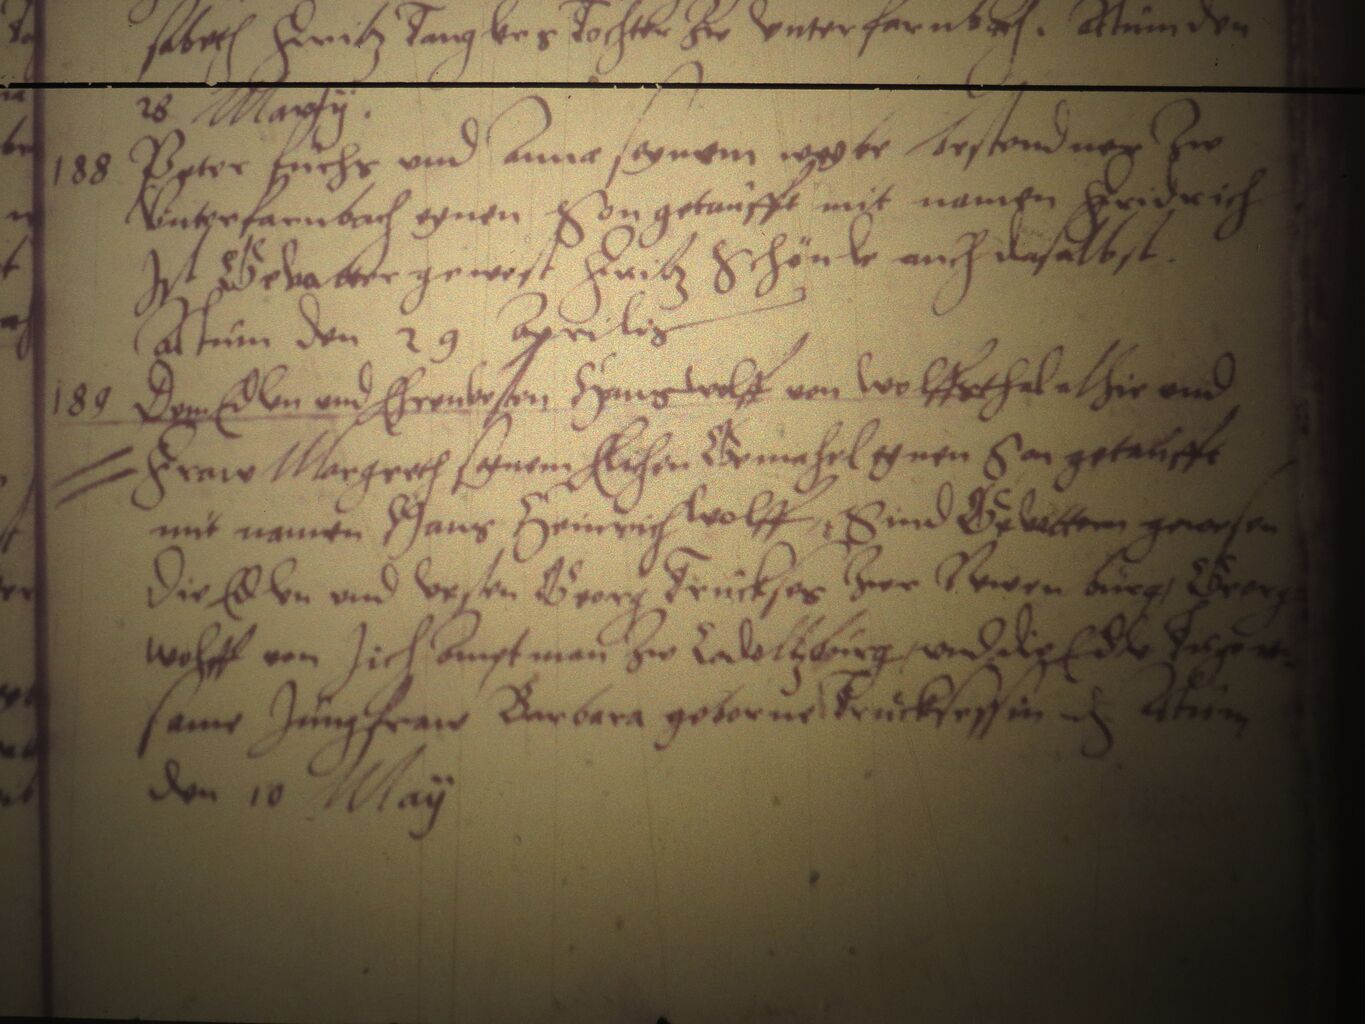 sabeth Fritz Tang des Tochter Zu Unterfarnbach. Actum den
28 Martij.
188 Peter Fuchs und Anna seynem weybe bestendner Zu
Unterfarnbach eynen Son getaufft mit namen Fridrich
Ist Gevatter gewest Fritz Schönle auch daselbst.
Actum den 29 Aprilis
189 Dem Edlen und Ehrenvesten Hans Wolff von Wolffsthal alhie und
Fraw Margreth seynem Elichen Gemahel eynen Son getaufft
mit namen Hans Heinrich Wolff, Sind Gevattern gewesen
Die Edlen und vesten Georg Truckses Zur Newen burg, Georg
Wolff von amptman Zu Cadoltzburg, und die Edle Tugent-
same Jungfraw Barbara geborne Trucksessin Actum
den 10 Maÿ